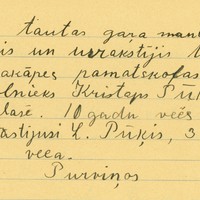 tautas gara mant
is un uzrakstījis V
akāpes pamatskolas
olnieks Kristaps Pūķ
lasē. 10 gadu vecs
astījusi L. Pūķis, 3
veca.
Purviņos